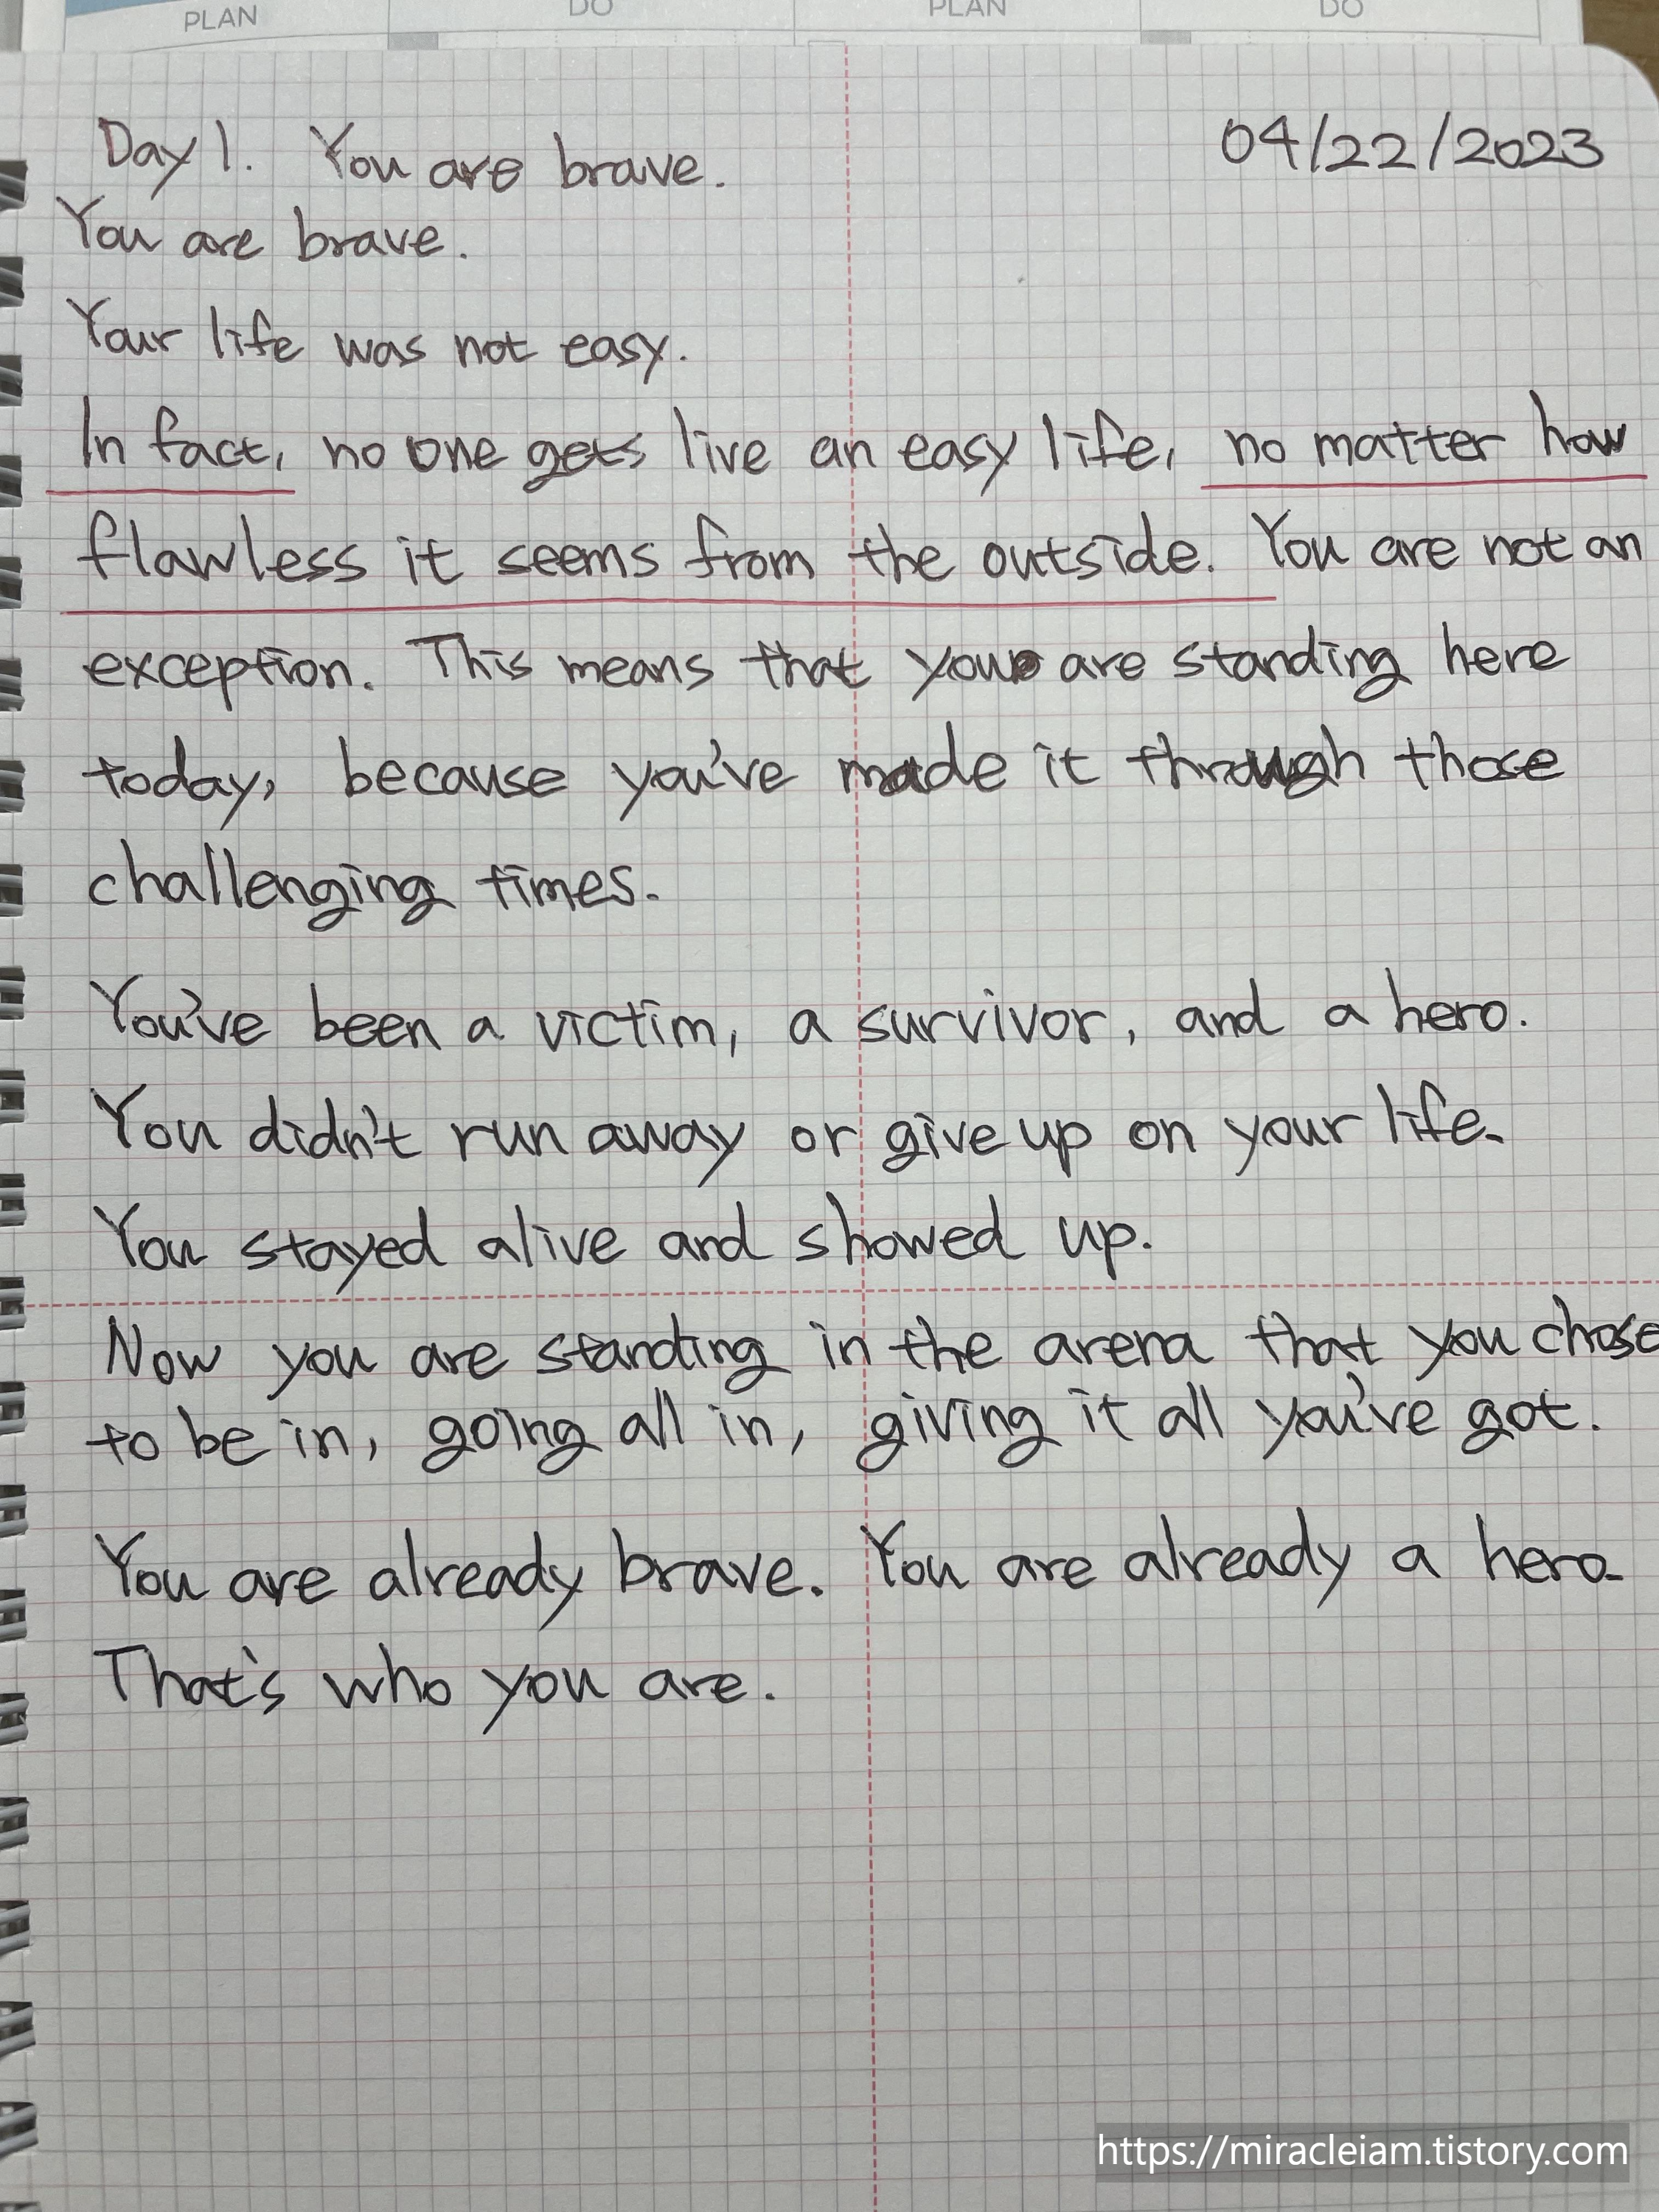 PLAN DO PLAN DO
Day 1. You are brave. 04/22/2023
You are brave.
Your life was not easy.
In fact, no one gets live an easy life, no matter how
flawless it seems from the outside. You are not an
exception. This means that you are standing here
today, because you've made it through those
challenging times.
You've been a victim, a survivor, and a hero.
You didn't run away or give up on your life.
You stayed alive and showed up.
Now you are standing in the arena that you chose
to be in, going all in, giving it all you've got.
You are already brave. You are already a hero.
That's who you are.
https://miracleiam.tistory.com